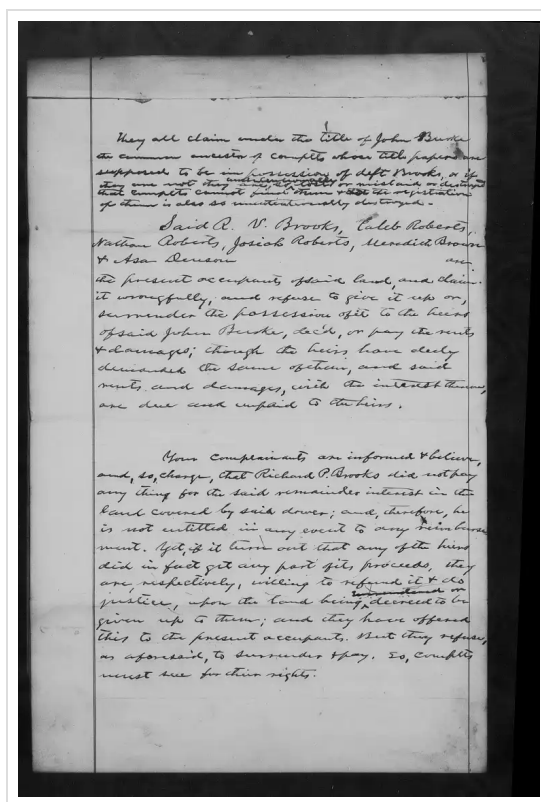 They all claim under the title of John Burke
the common ancestor of complts whose title papers are
supposed to be in possession of deft Brooks, or if
they are not they are, or mislaid or destroyed
that complts cannot find them & the registration
of them is also so unintentionally destroyed.
Said R. V. Brooks, Caleb Roberts,
Nathan Roberts, Josiah Roberts, Meredith Brown
& Asa Denison are
the present occupants of said land, and claim
it wrongfully, and refuse to give it up or,
surrender the possession of it to the heirs
of said John Burke, dec'd, or pay the rents
& damages; though the heirs have duly
demanded the same of them, and said
rents and damages, with the interest thereon,
are due and unpaid to the heirs.
Your complainants are informed & believe,
and, so, charge, that Richard P. Brooks did not pay
any thing for the said remainder interest in the
land covered by said dower; and, therefore, he
is not entitled in any event to any reimburse
ment. Yet, if it turn out that any of the heirs
did in fact get any part of its proceeds, they
are, respectively, willing to refund it & do
justice, upon the land being surrendered or decreed to be
given up to them; and they have offered
this to the present occupants. But they refuse,
as aforesaid, to surrender & pay. So, complts
must sue for their rights.